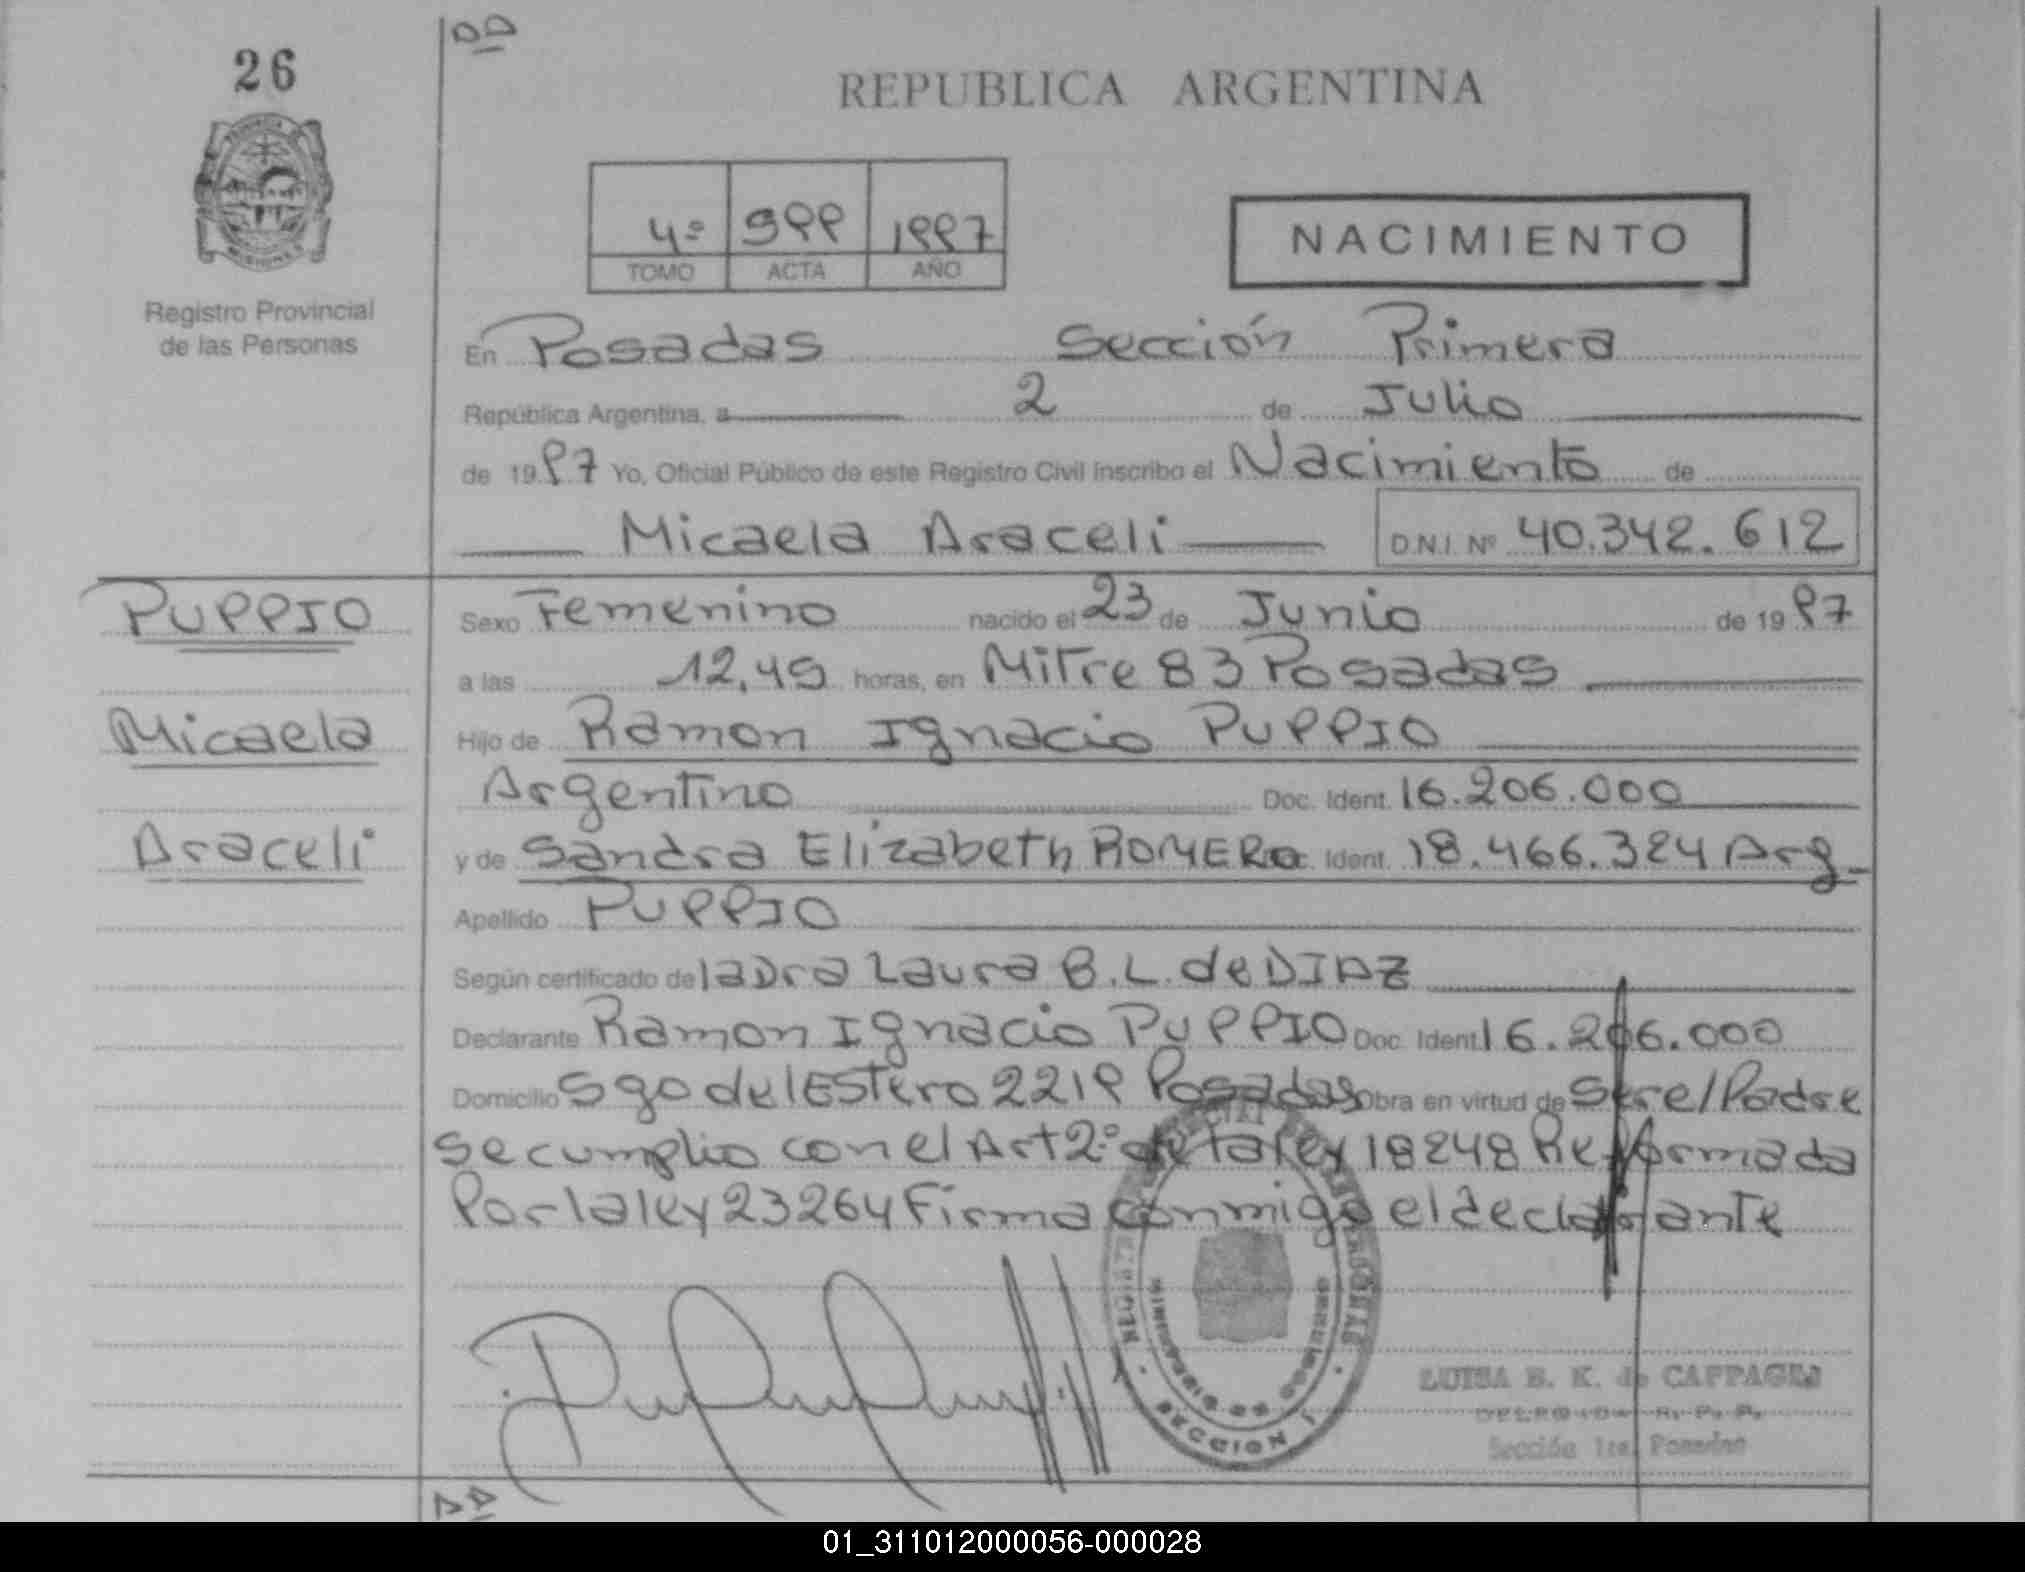 26
REPUBLICA ARGENTINA
4º 999 1997
TOMO ACTA AÑO
NACIMIENTO
Registro Provincial
de las Personas
En Posadas Sección Primera
República Argentina, a 2 de Julio
de 1997 Yo, Oficial Público de este Registro Civil inscribo el Nacimiento de
Micaela Araceli D.N.I. Nº 40.342.612
PUPPIO
Micaela
Araceli
Sexo Femenino nacido el 23 de Junio de 1997
a las 12,45 horas, en Mitre 83 Posadas
Hijo de Ramon Ignacio PUPPIO
Argentino Doc. Ident. 16.206.000
y de Sandra Elizabeth ROMERO Ident. 18.466.324 Arg.
Apellido PUPPIO
Según certificado de la Dra Laura B.L. de DIAZ
Declarante Ramon Ignacio PUPPIO Doc. Ident 16.206.000
Domicilio Sgo del Estero 2219 Posadas Obra en virtud de Ser el Padre
Se cumplio con el Art 2º de la ley 18248 Reformada
Por la ley 23264 Firma conmigo el declarante
SECCION 1
LUISA B. K. de CAPPAGLI
Sección 1ra. Posadas
01_311012000056-000028